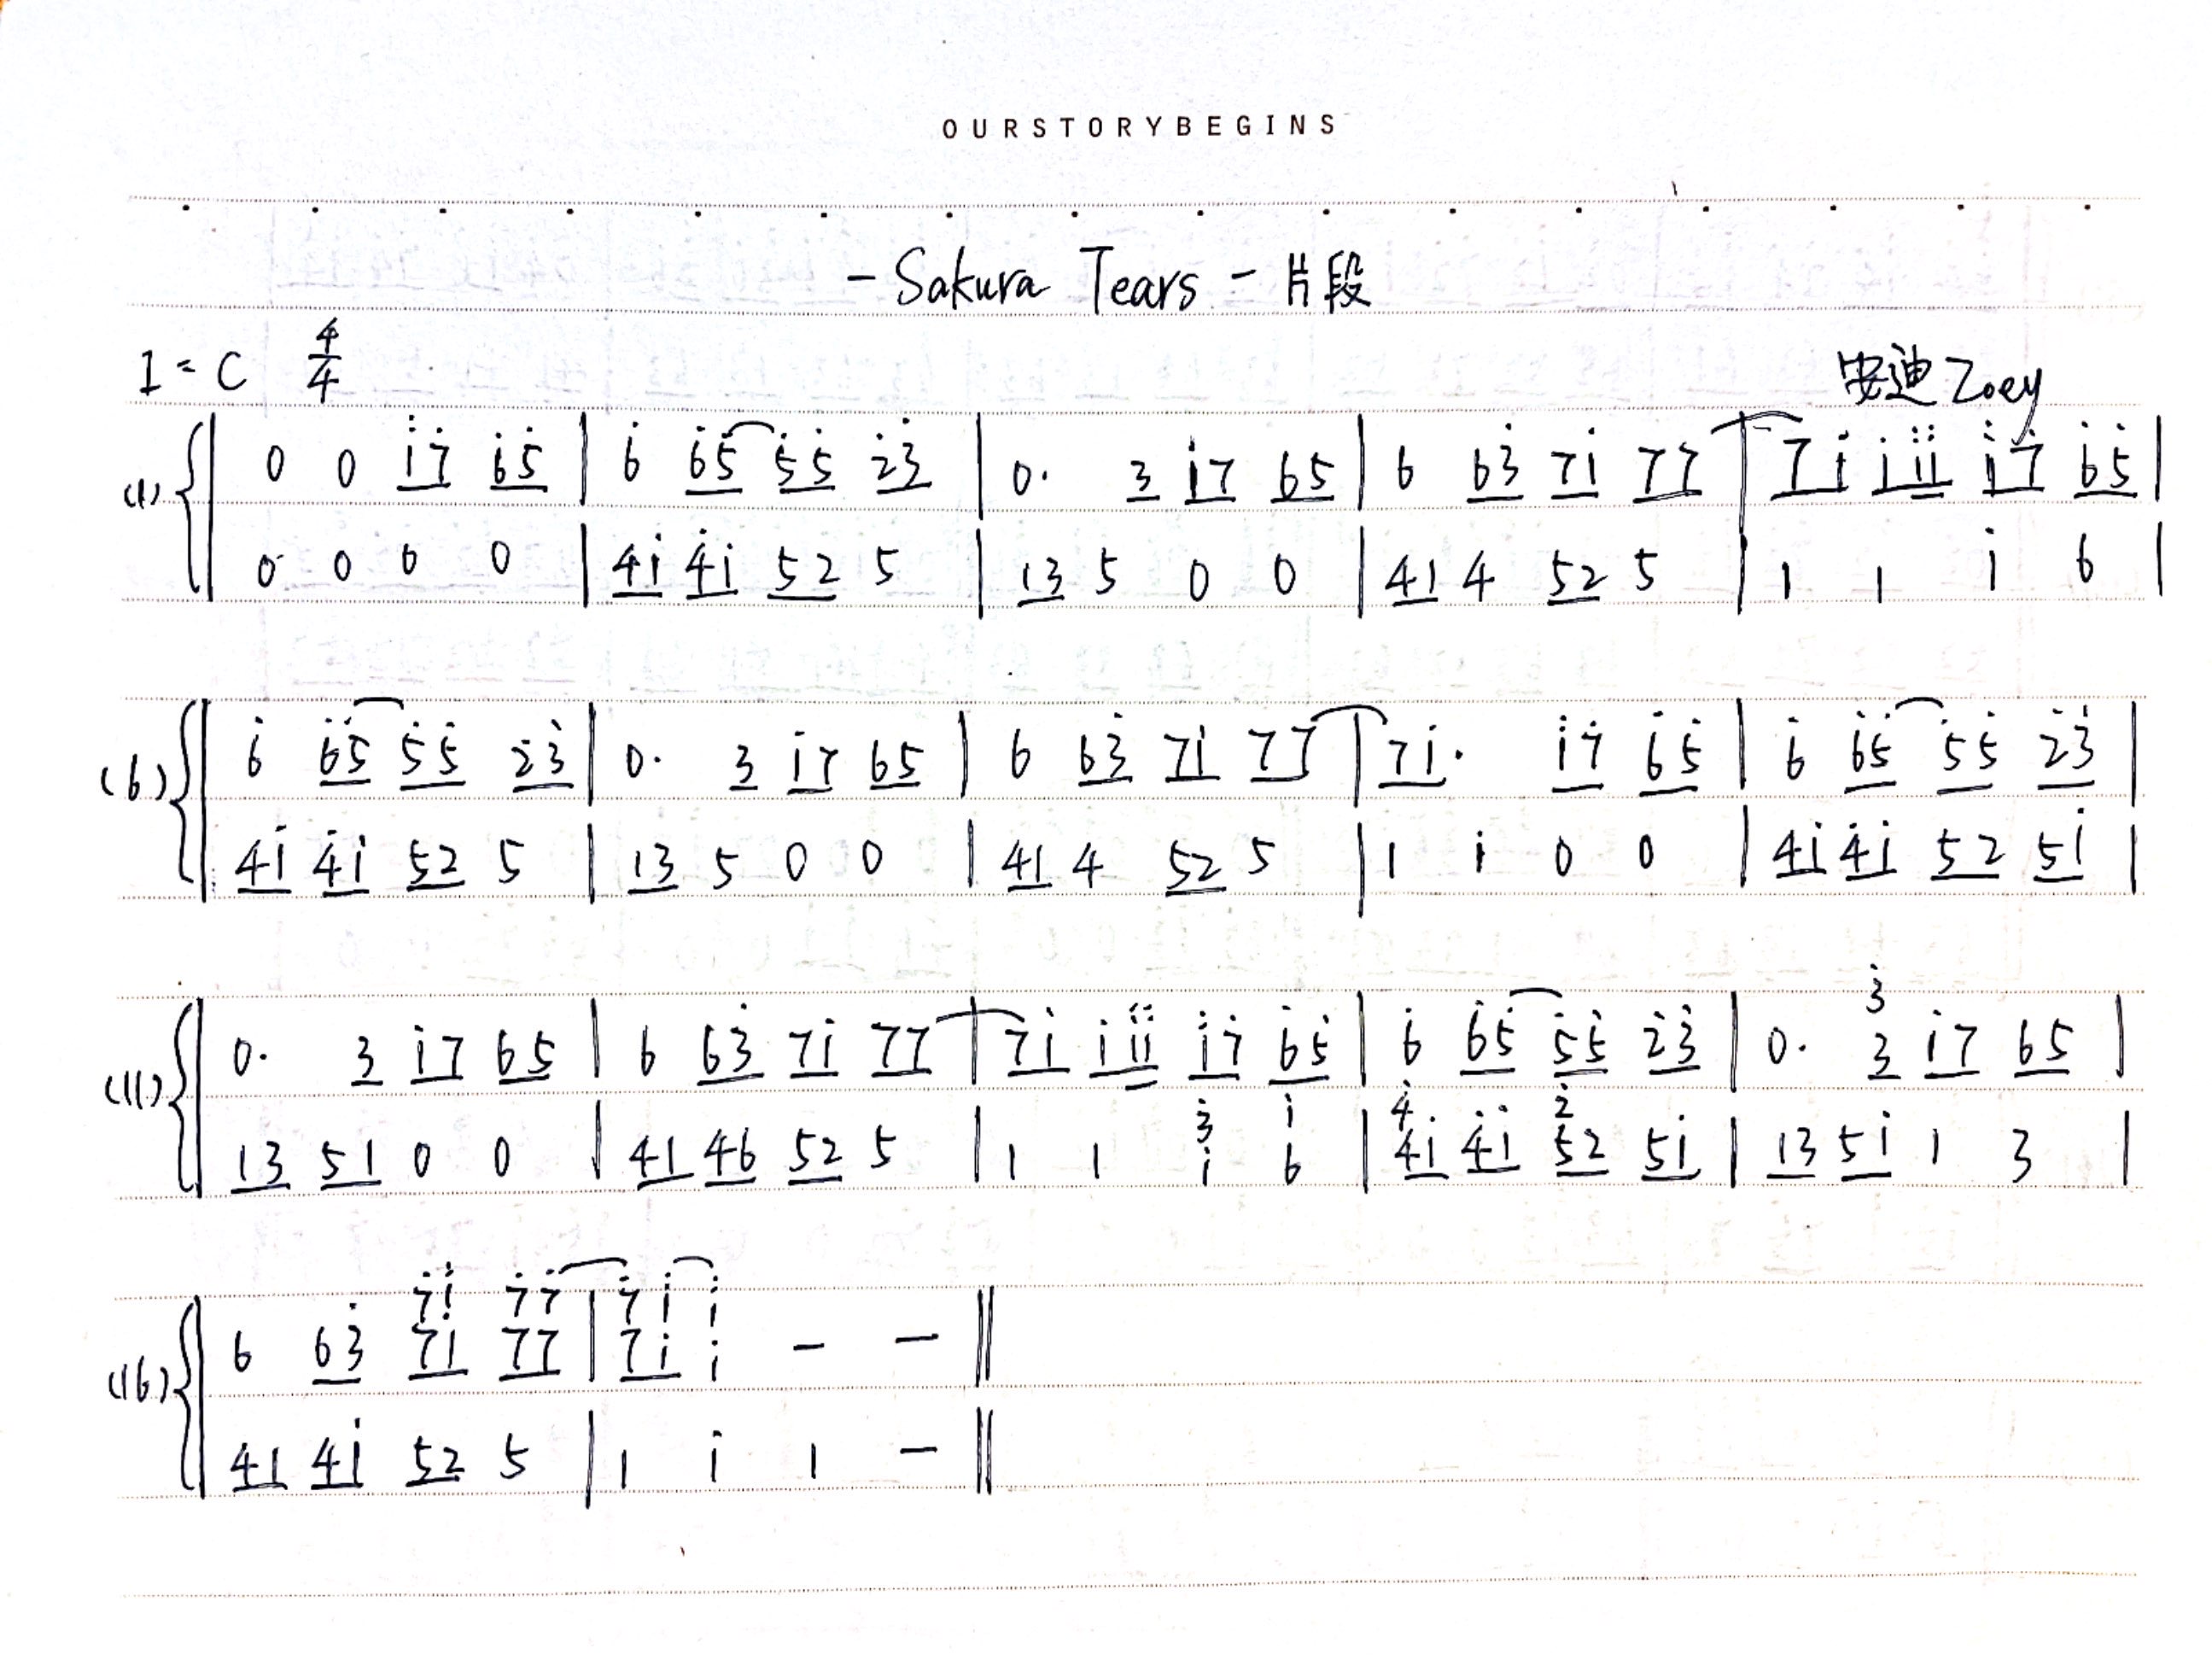 OURSTORYBEGINS
- Sakura Tears - 片段
1=C 4/4
安迪Zoey
(1) 0 0 i̇7̇ 6̇5̇ | 6̇ 6̇5̇ 5̇5̇ 2̇3̇ | 0· 3 i7 65 | 6 63̇ 7i 77 | 7i i i̇i̇ i̇7̇ 6̇5̇ |
0 0 0 0 | 4i 4̇i 52 5 | 13 5 0 0 | 41 4 52 5 | 1 1 i 6 |
(6) 6̇ 6̇5̇ 5̇5̇ 2̇3̇ | 0· 3 i7 65 | 6 63̇ 7i 77 | 7i· i̇7̇ 6̇5̇ | 6̇ 6̇5̇ 5̇5̇ 2̇3̇ |
4i 4̇i 52 5 | 13 5 0 0 | 41 4 52 5 | 1 i 0 0 | 4i 4̇i 52 5i |
(11) 0· 3 i7 65 | 6 63̇ 7i 77 | 7i i i̇i̇ i̇7̇ 6̇5̇ | 6̇ 6̇5̇ 5̇5̇ 2̇3̇ | 0· 3̇ 3 i7 65 |
13 51 0 0 | 41 46 52 5 | 1 1 3̇ i i 6 | 4̇ 4i 4̇i 2̇ 52 5i | 13 5i 1 3 |
(16) 6 63̇ 7̇i̇ 7i 7̇7̇ 77 | 7̇i̇ 7i i̇ i - - ||
41 4i 52 5 | 1 i 1 - ||